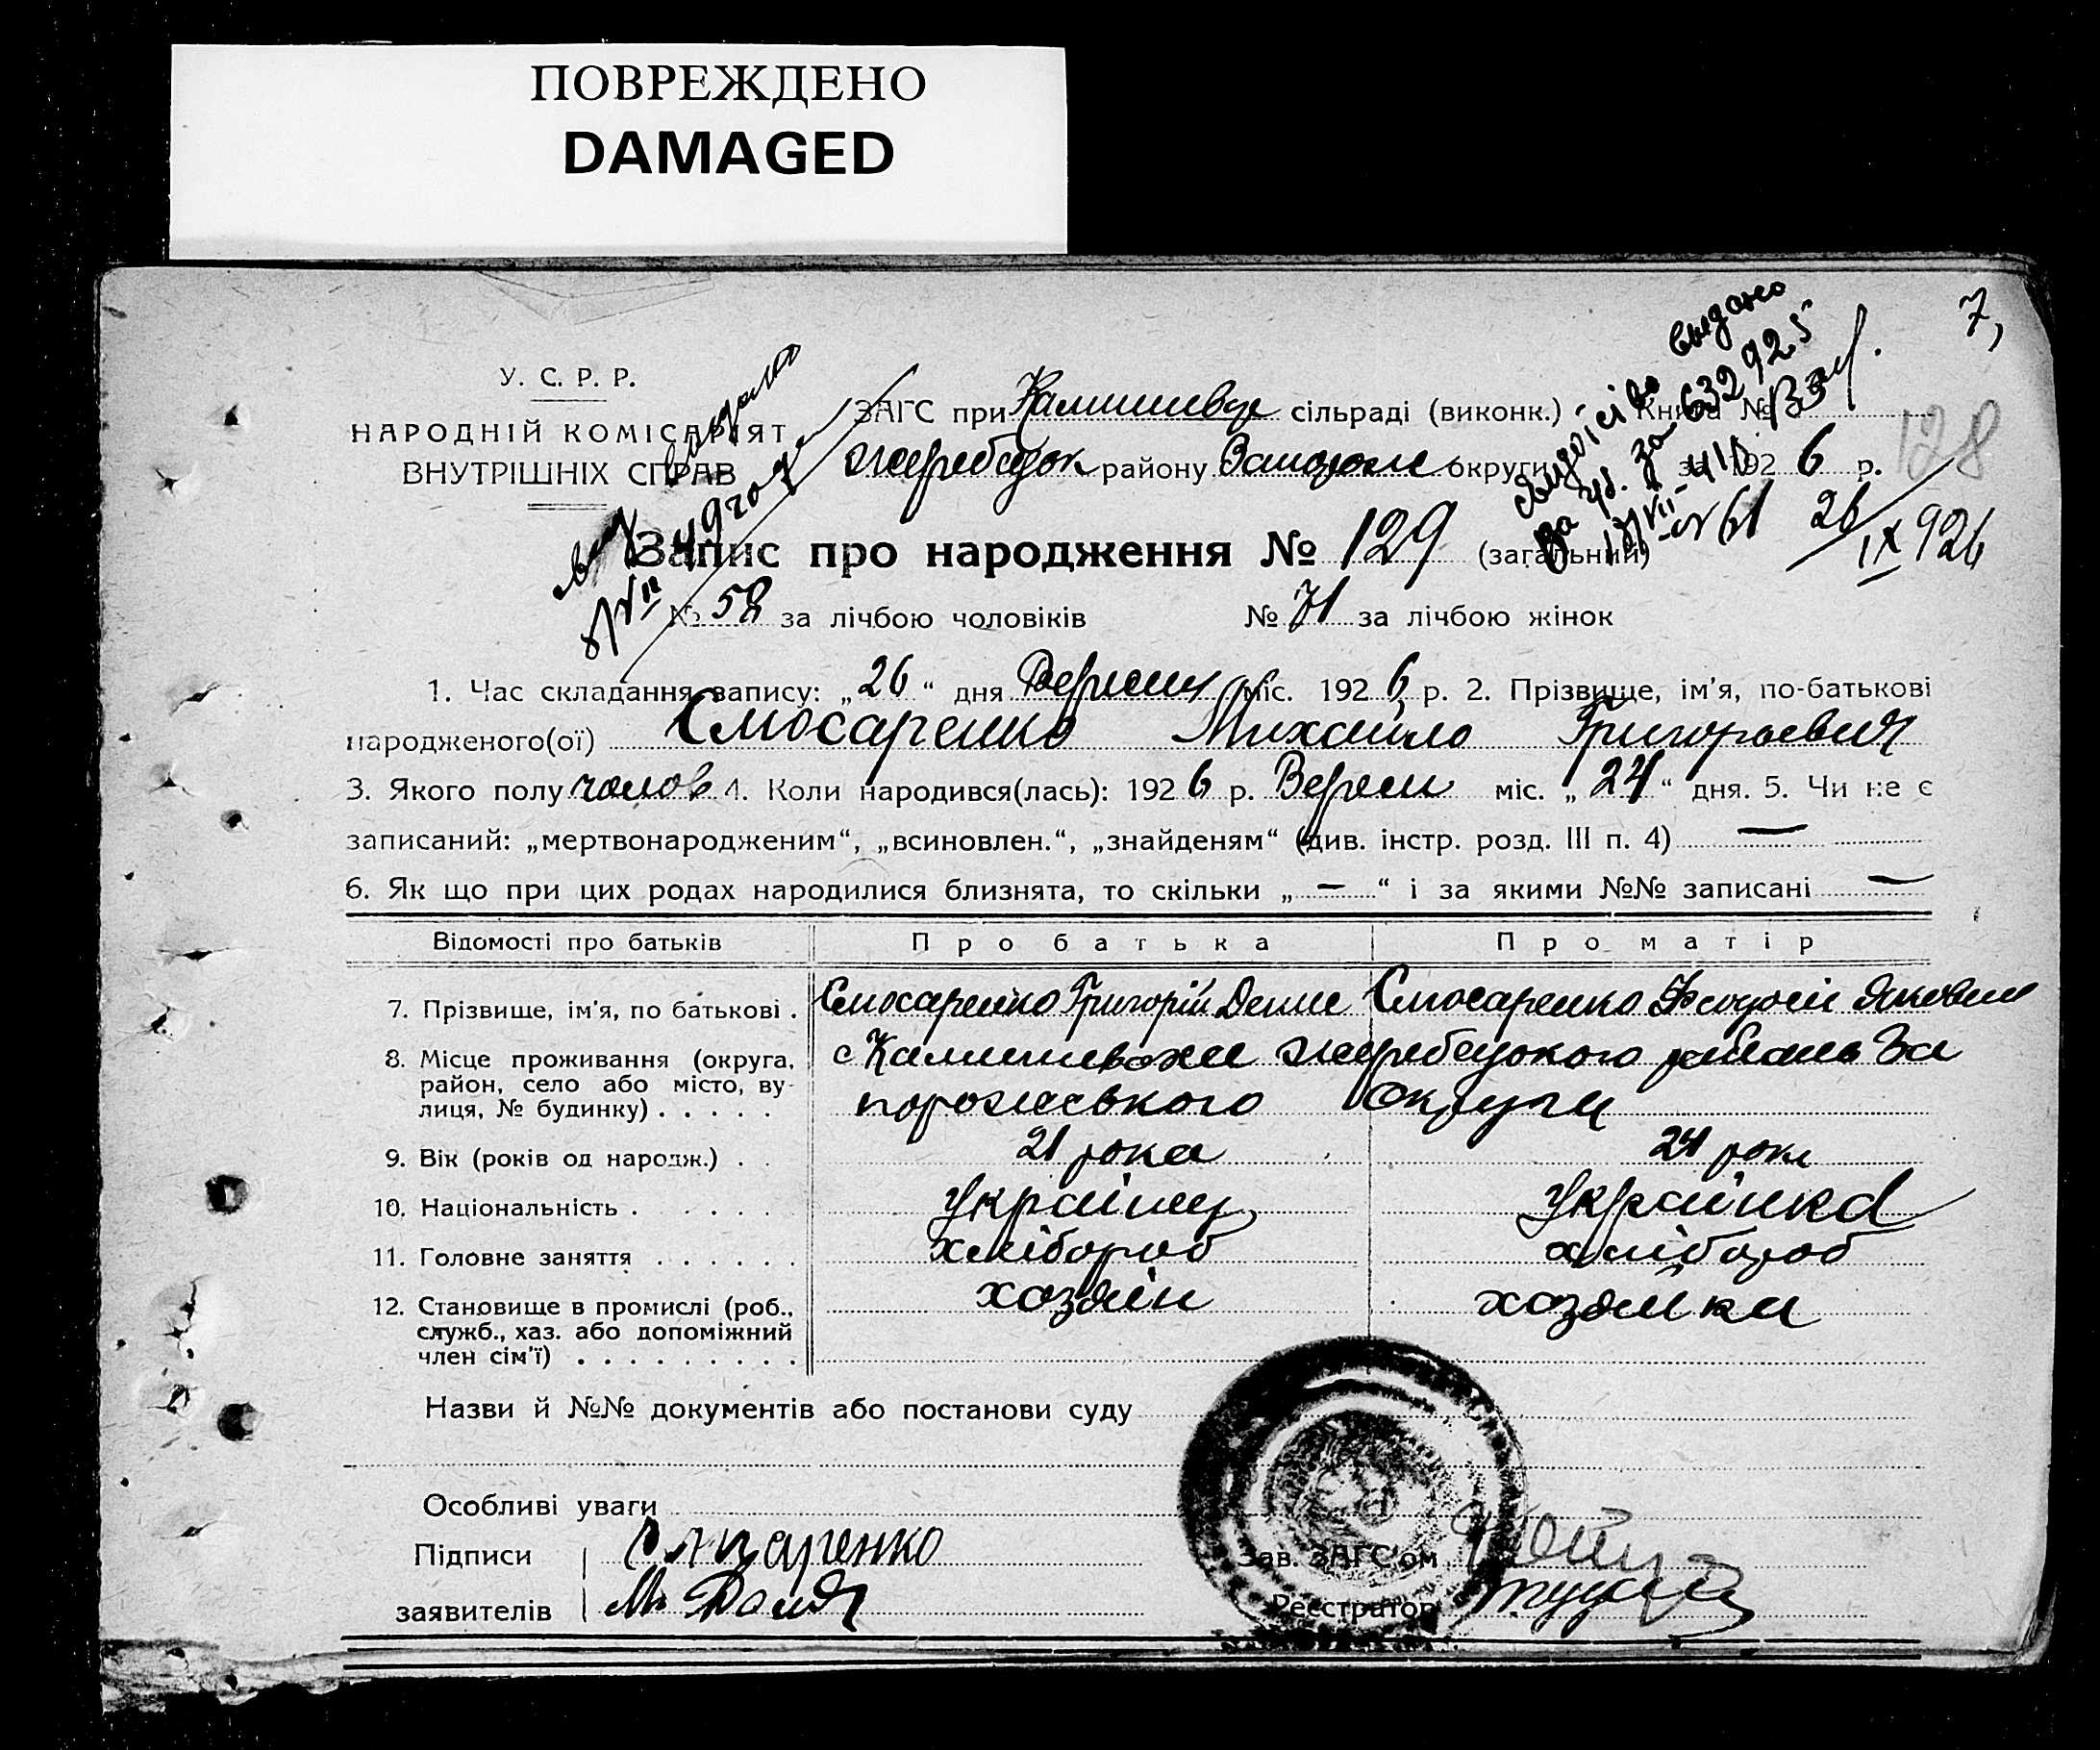 ПОВРЕЖДЕНО
DAMAGED
7,
У. С. Р. Р.
НАРОДНІЙ КОМІСАРІЯТ
ВНУТРІШНІХ СПРАВ
ЗАГС при сільраді (виконк.) Книга №
району округи за 1926 р.
128
видано
632925
26/IX 926
Запис про народження № 129 (загальний)
№ 58 за лічбою чоловіків № 71 за лічбою жінок
1. Час складання запису: „26“ дня міс. 1926 р. 2. Прізвище, ім'я, по-батькові
народженого(ої) Слюсаренко Михайло Григорьевич
3. Якого полу чолов 4. Коли народився(лась): 1926 р. Вересн міс. „24“ дня. 5. Чи не є
записаний: „мертвонародженим“, „всиновлен.“, „знайденям“ (див. інстр. розд. III п. 4) —
6. Як що при цих родах народилися близнята, то скільки „—“ і за якими №№ записані —
Відомості про батьків Про батька Про матір
7. Прізвище, ім'я, по батькові . Слюсаренко Григорій Денис Слюсаренко
8. Місце проживання (округа, район, село або місто, вулиця, № будинку) . . . . . с Жеребецького района За
порожського Округи
9. Вік (років од народж.) . . 21 рока 24 роки
10. Національність . . . . . Українец Українка
11. Головне заняття . . . . . . хлібороб хлібороб
12. Становище в промислі (роб., служб., хаз. або допоміжний член сім'ї) . . . . . . . . . хозяїн хозяйка
Назви й №№ документів або постанови суду
Особливі уваги
Підписи Слюсаренко Зав. ЗАГС'ом
заявителів Реєстратор